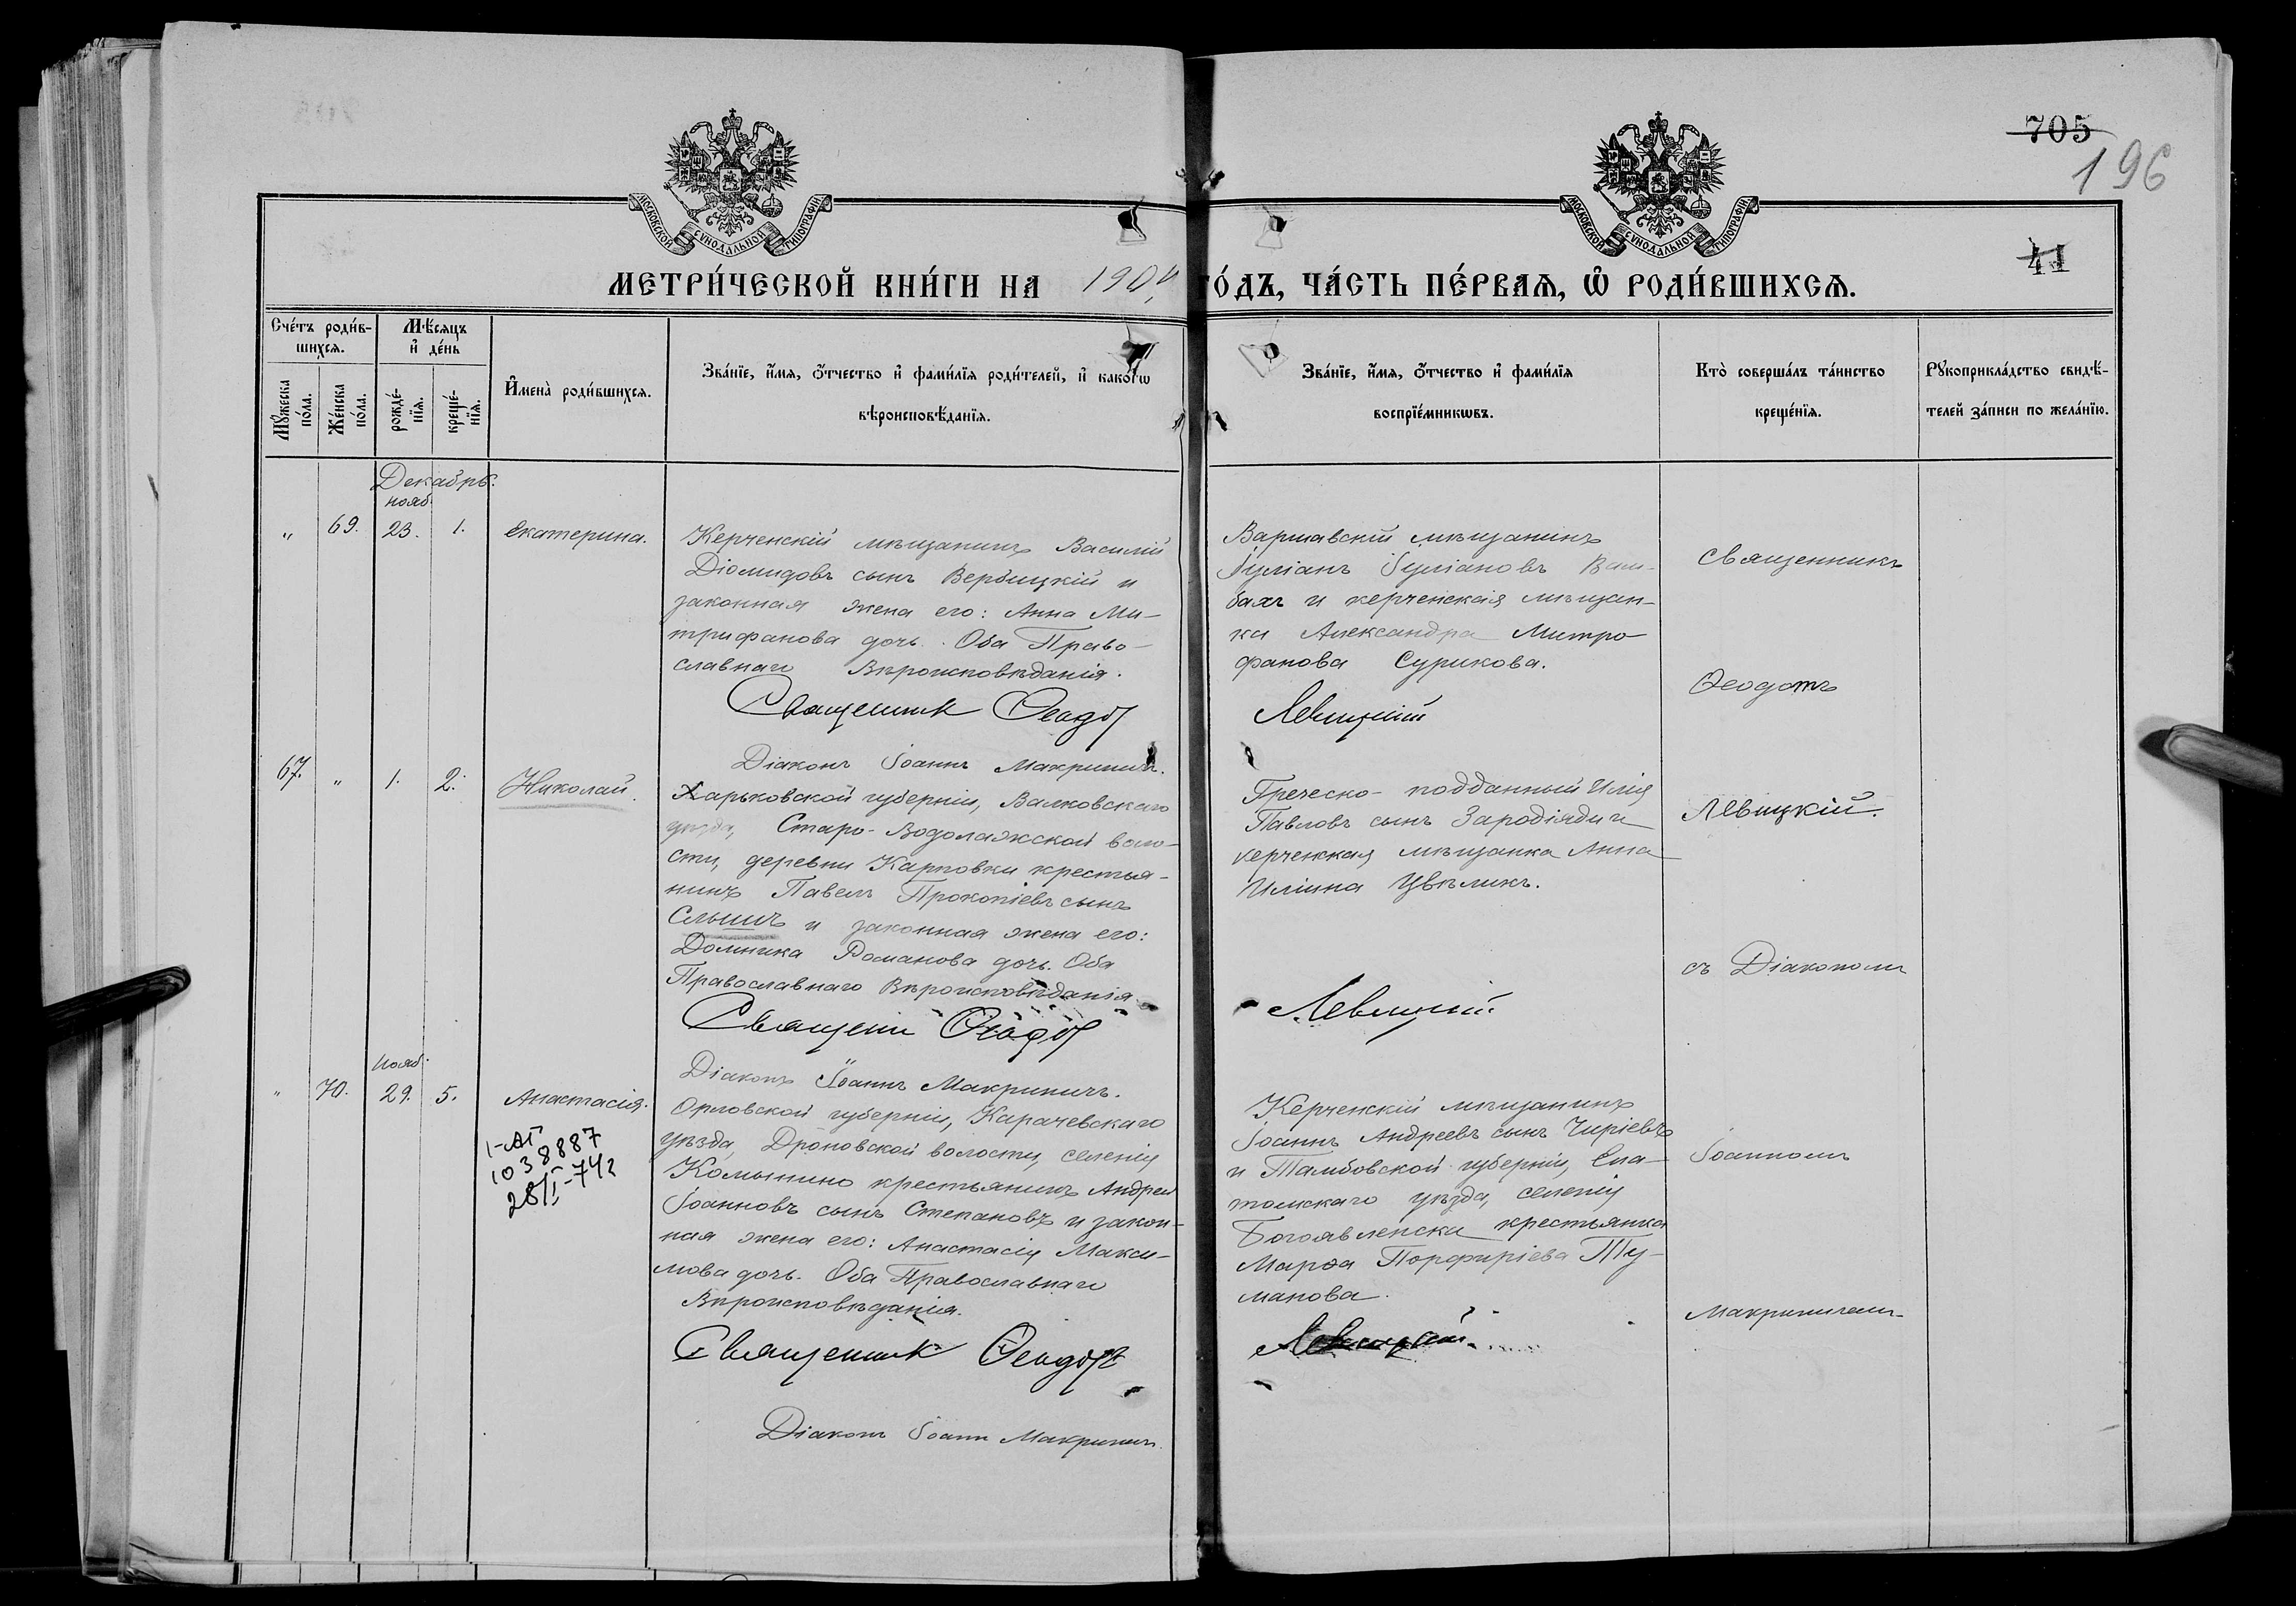 705
196
41
МОСКОВСКОЙ СѴНОДАЛЬНОЙ ТИПОГРАФІИ
МОСКОВСКОЙ СѴНОДАЛЬНОЙ ТИПОГРАФІИ
МЕТРИ́ЧЕСКОЙ КНИ́ГИ НА 1904 ГО́ДЪ, ЧА́СТЬ ПЕ́РВАѦ, Ѽ РОДИ́ВШИХСѦ.
Сче́тъ роди́в-
шихсѧ.
Мꙋ́жеска
по́ла.
Же́нска
по́ла.
Мѣ́сѧцъ
и҆ де́нь
рожде́-
нїѧ.
креще́-
нїѧ.
И҆мена̀ роди́вшихсѧ.
Зва́нїе, и҆́мѧ, ѻ҆́тчество и҆ фами́лїѧ роди́телей, и҆ како́гѡ
вѣроисповѣ́данїѧ.
Зва́нїе, и҆́мѧ, ѻ҆́тчество и҆ фами́лїѧ
воспрїе́мникѡвъ.
Кто̀ соверша́лъ та́инство
креще́нїѧ.
Рꙋкоприкла́дство свидѣ́-
телей за́писи по жела́нїю.
Декабрь.
нояб.
" 69. 23. 1. Екатерина.
Керченскій мѣщанинъ Василій
Діомидовъ сынъ Вербицкій и
законная жена его: Анна Ми-
трифанова дочь. Оба Право-
славнаго Вѣроисповѣданія.
Священник Ѳеодот
Варшавскій мѣщанинъ
Іуліанъ Іуліановъ
бахъ и керченская мѣщан-
ка Александра Митро
фанова Сурикова.
Левицкій
Священникъ
Ѳеодотъ
Левицкій.
съ Діакономъ
Іоанномъ
Макриничемъ
Діаконъ Іоаннъ Макриничъ.
67. " 1. 2. Николай.
Харьковской губерніи, Валковскаго
уѣзда, Старо-Водолажской воло-
сти, деревни Карповки крестья-
нинъ Павелъ Прокопіевъ сынъ
и законная жена его:
Домника Романова дочь. Оба
Православнаго Вѣроисповѣданія
Священ Ѳеодот
Греческо-подданный Илія
Павловъ сынъ Зародіяди и
керченская мѣщанка Анна
Иліина Цвѣликъ.
Левицкій.
Діаконъ Іоаннъ Макриничъ.
Нояб.
" 70. 29. 5. Анастасія.
1-АГ
1038887
28/I-742
Орловской губерніи, Карачевскаго
уѣзда, Дроновской волости, селенія
Комынино крестьянинъ Андрей
Іоанновъ сынъ Степановъ и закон-
ная жена его: Анастасія Макси-
мова дочь. Оба Православнаго
Вѣроисповѣданія.
Священник Ѳеодотъ
Керченскій мѣщанинъ
Іоаннъ Андреевъ сынъ Чиріевъ
и Тамбовской губерніи, Ела-
томскаго уѣзда, селенія
Богоявленска крестьянка
Марѳа Порфиріева Ту-
манова.
Левицкій.
Діаконъ Іоанн Макринич.